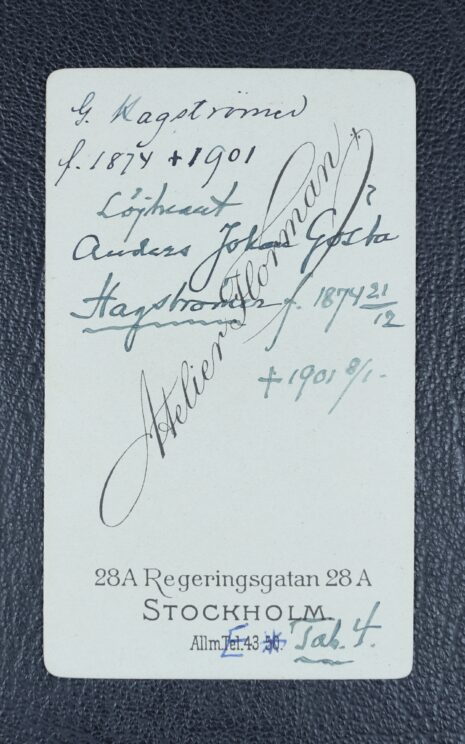 G. Hagströmer
f. 1874 + 1901
Löjtnant ?
Anders Johan Gösta
Hagströmer f. 1874 21/12
+ 1901 8/1.
Atelier Florman
28A Regeringsgatan 28A
STOCKHOLM.
Allm.Tel. 43 50.
E # Tab. 4.